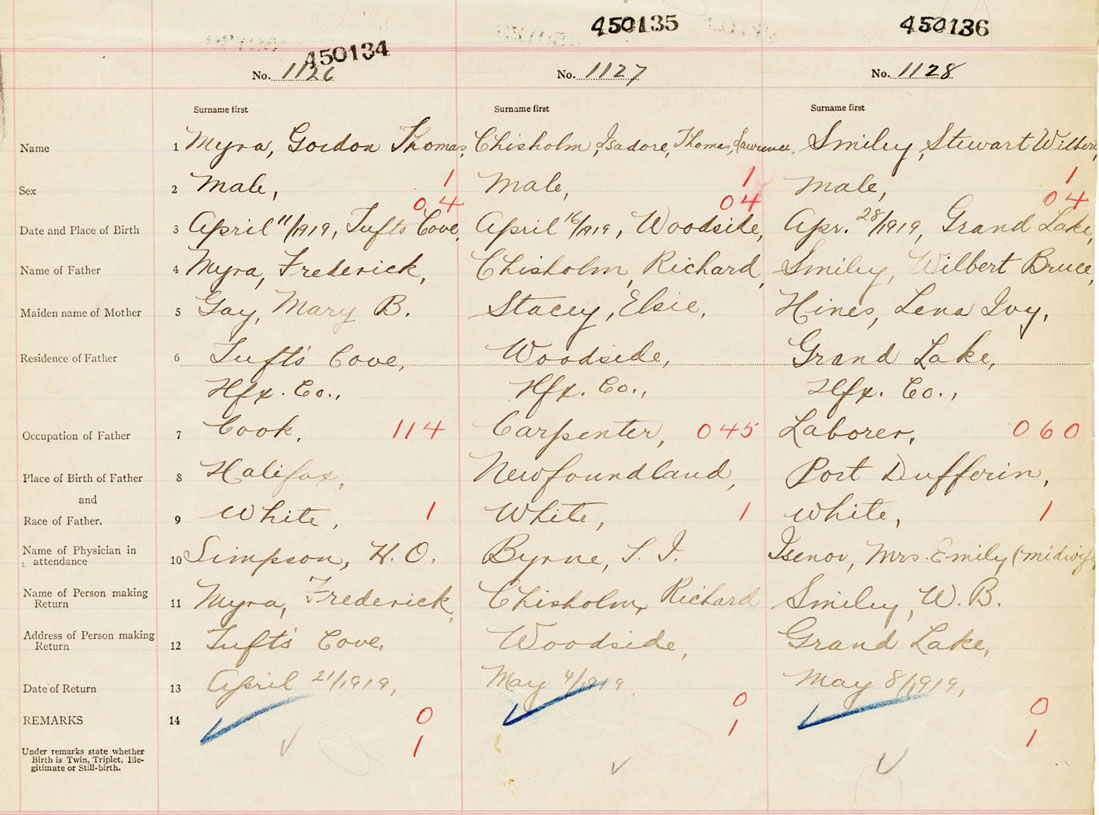 450134 450135 450136
No. 1126 No. 1127 No. 1128
Surname first Surname first Surname first
Name 1 Myra, Gordon Thomas, Chisholm, Isadore, Thomas, Lawrence, Smiley, Stewart Wilbert,
Sex 2 Male, 1 Male, 1 Male, 1
04 04 04
Date and Place of Birth 3 April 11/1919, Tufts Cove, April 16/1919, Woodside, Apr. 28/1919, Grand Lake,
Name of Father 4 Myra, Frederick, Chisholm, Richard, Smiley, Wilbert Bruce,
Maiden name of Mother 5 Gay, Mary B. Stacey, Elsie, Hines, Lena Ivy,
Residence of Father 6 Tuft's Cove, Woodside, Grand Lake,
Hfx. Co., Hfx. Co., Hfx. Co.,
Occupation of Father 7 Cook, 114 Carpenter, 045 Laborer, 060
Place of Birth of Father 8 Halifax, Newfoundland, Port Dufferin,
and
Race of Father. 9 White, 1 White, 1 White, 1
Name of Physician in attendance 10 Simpson, H. O. Byrne, T. J. Isenov, Mrs. Emily (midwife
Name of Person making Return 11 Myra, Frederick, Chisholm, Richard Smiley, W. B.
Address of Person making Return 12 Tuft's Cove, Woodside, Grand Lake,
Date of Return 13 April 21/1919, May 4/1919, May 8/1919,
REMARKS 14 0 0 0
1 1 1
Under remarks state whether
Birth is Twin, Triplet, Ille-
gitimate or Still-birth.